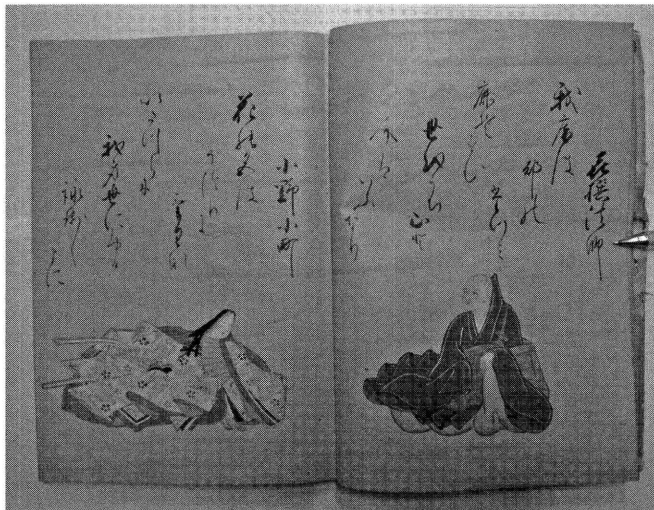 喜撰法師
我庵は
都の
たつみ
鹿そすむ
世をうち
山と
人はいふ
なり
小野小町
花の色は
うつりに
けりな
いたつらに
我身世にふる
詠せし
まに